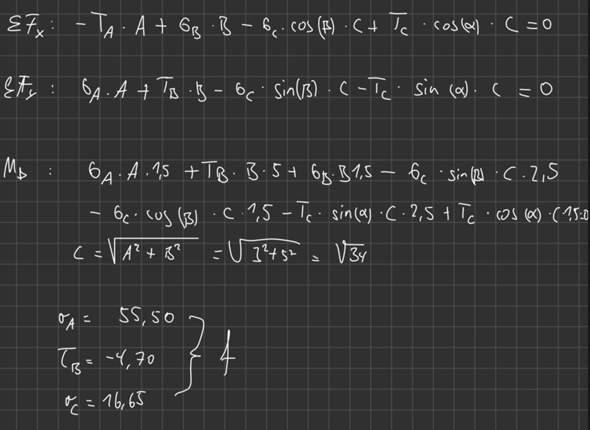 ΣFx: -τA · A + σB · B - σc · cos(β) · C + τc · cos(α) · C = 0
ΣFy: σA · A + τB · B - σc · sin(β) · C - τc · sin(α) · C = 0
MD: σA · A · 1,5 + τB · B · 5 + σB · B 1,5 - σc · sin(β) · C · 2,5
- σc · cos(β) · C · 1,5 - τc · sin(α) · C · 2,5 + τc · cos(α) · C 1,5=0
C = √A² + B² = √3²+5² = √34
σA = 55,50
τB = -4,70
σC = 16,65